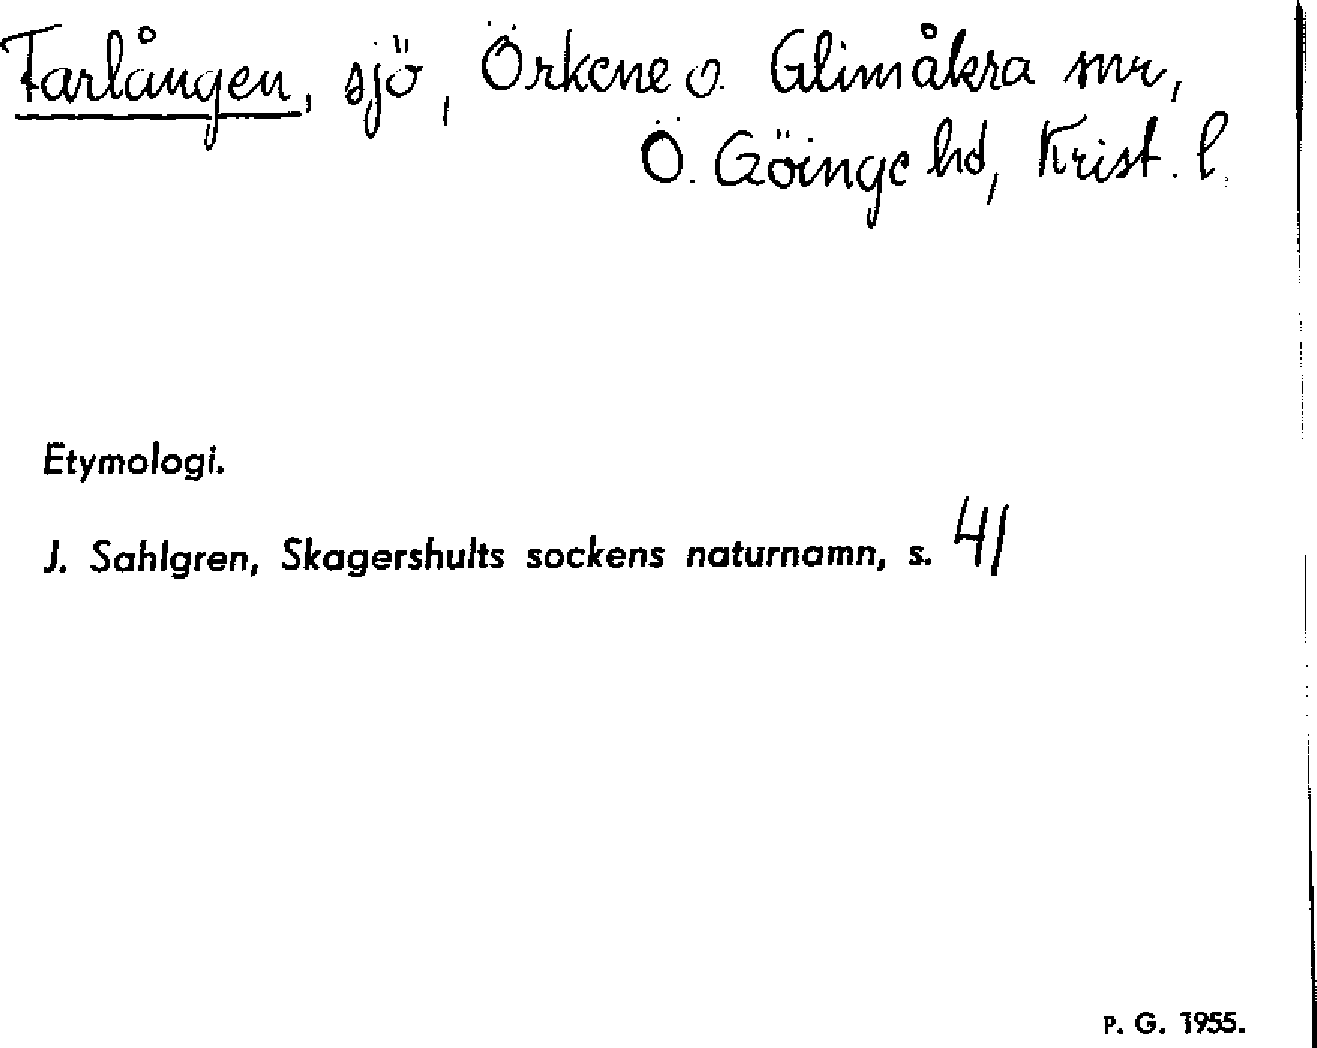 Farlången, sjö, Örkene o. Glimåkra snr,
Ö. Göinge hd, Krist. l.
Etymologi.
J. Sahlgren, Skagershults sockens naturnamn, s. 41
P. G. 1955.